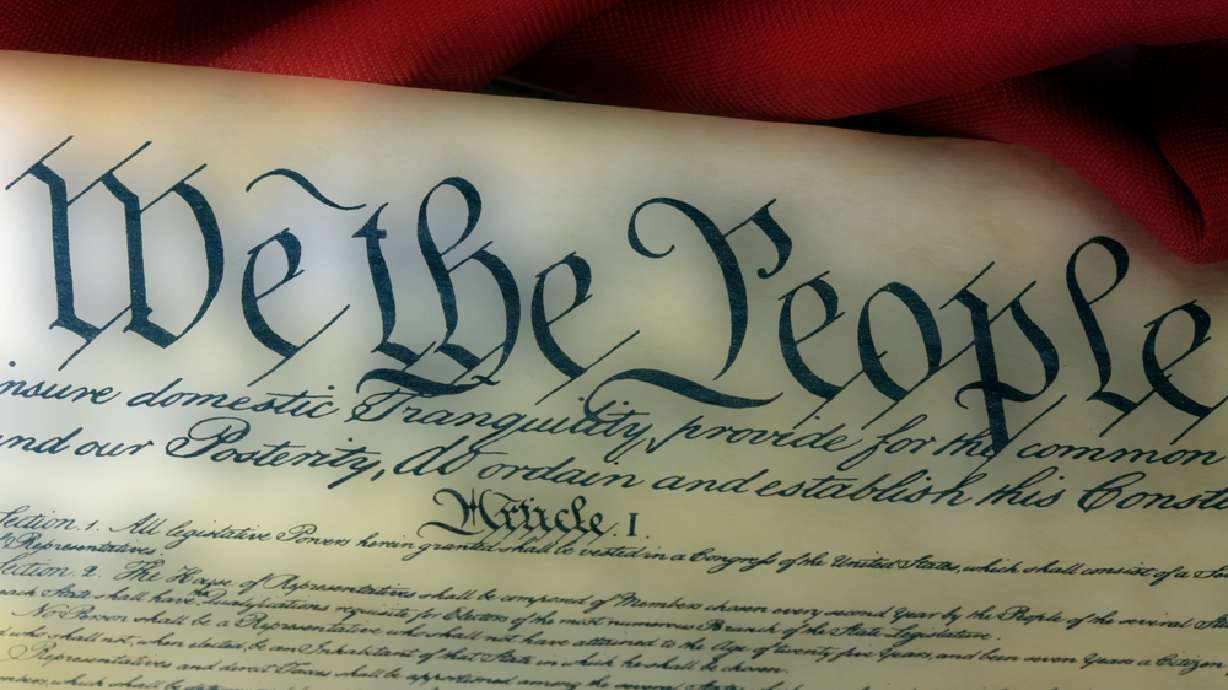 We the People
insure domestic Tranquility, provide for the common
and our Posterity, do ordain and establish this Constit
Article. I.
Section. 1. All legislative Powers herein granted shall be vested in a Congress of the United States, which shall consist of a Se
of Representatives.
Section. 2. The House of Representatives shall be composed of Members chosen every second Year by the People of the several Sta
each State shall have the Qualifications requisite for Electors of the most numerous Branch of the State Legislature.
No Person shall be a Representative who shall not have attained to the Age of twenty five Years, and been seven Years a Citizen
d who shall not, when elected, be an Inhabitant of that State in which he shall be chosen.
Representatives and direct Taxes shall be apportioned among the several States